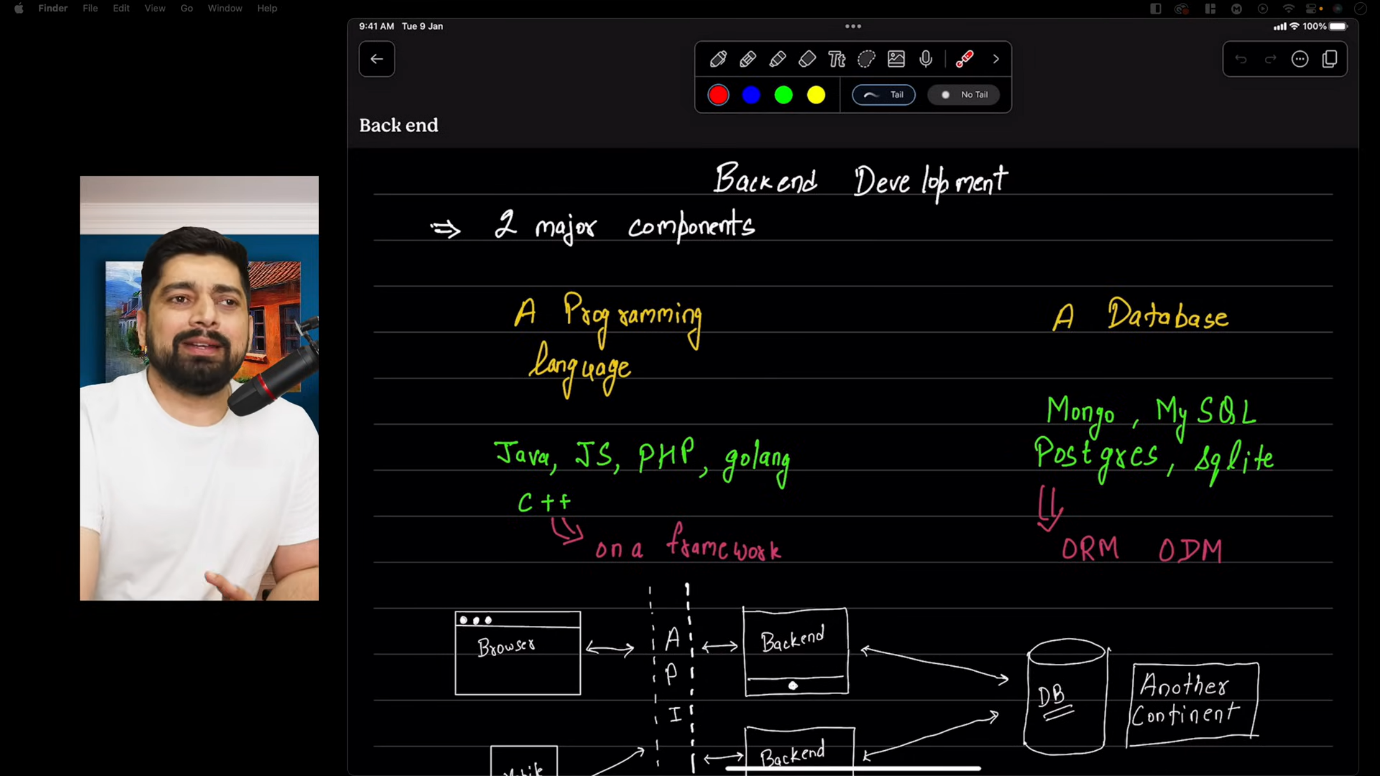 Finder File Edit View Go Window Help
9:41 AM Tue 9 Jan
100%
Tt
Tail
No Tail
Back end
Backend Development
⇒ 2 major components
A Programming
language
A Database
Java, JS, PHP, golang
C++
on a framework
Mongo, MySQL
Postgres, sqlite
ORM ODM
Browser
A
P
I
Backend
DB
Another
Continent
Backend